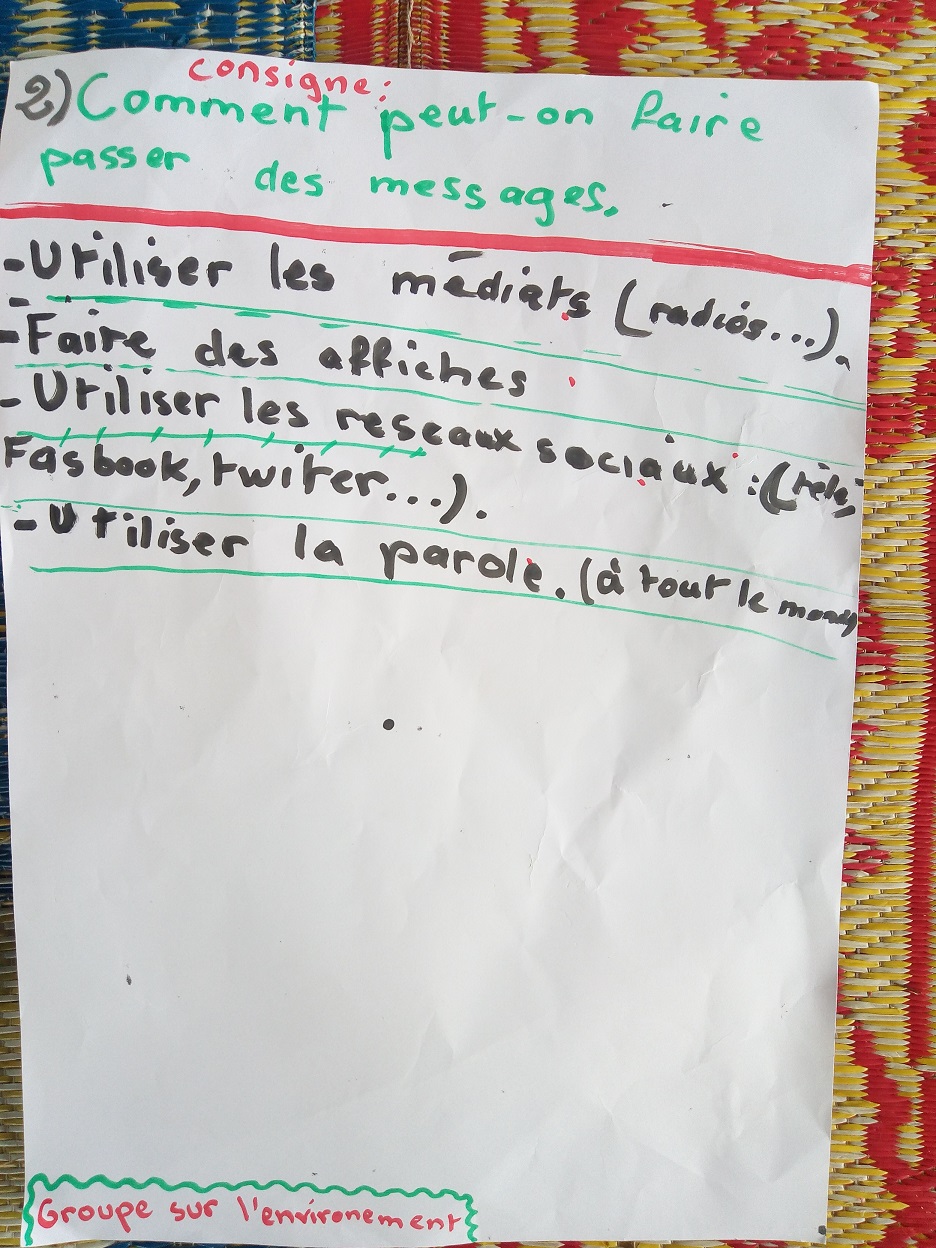 consigne:
2) Comment peut-on faire
passer des messages.
-Utiliser les médiats (radios...).
-Faire des affiches
-Utiliser les reseaux sociaux: (télé,
Fasbook, twiter...).
-Utiliser la parole. (à tout le monde)
Groupe sur l'environement